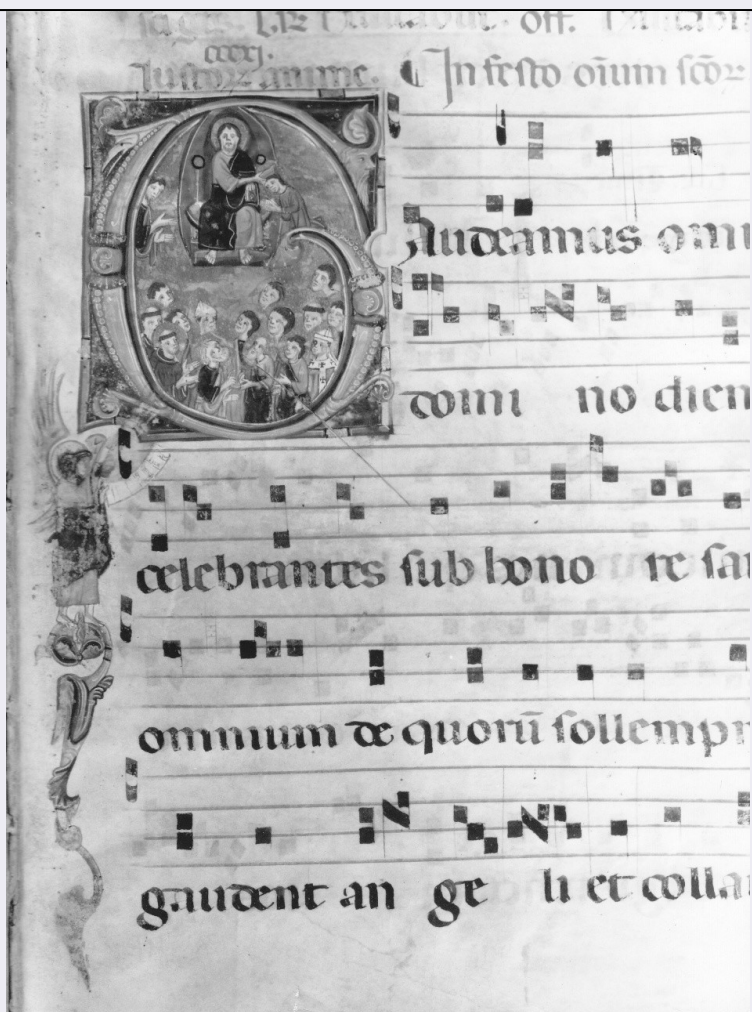 off.
ccccxj.
Iustorꝝ anime. In festo oīum scōꝝ
Gaudeamus omn
domi no diem
celebrantes sub hono re san
omnium de quorū sollempn
gaudent an ge li et colla